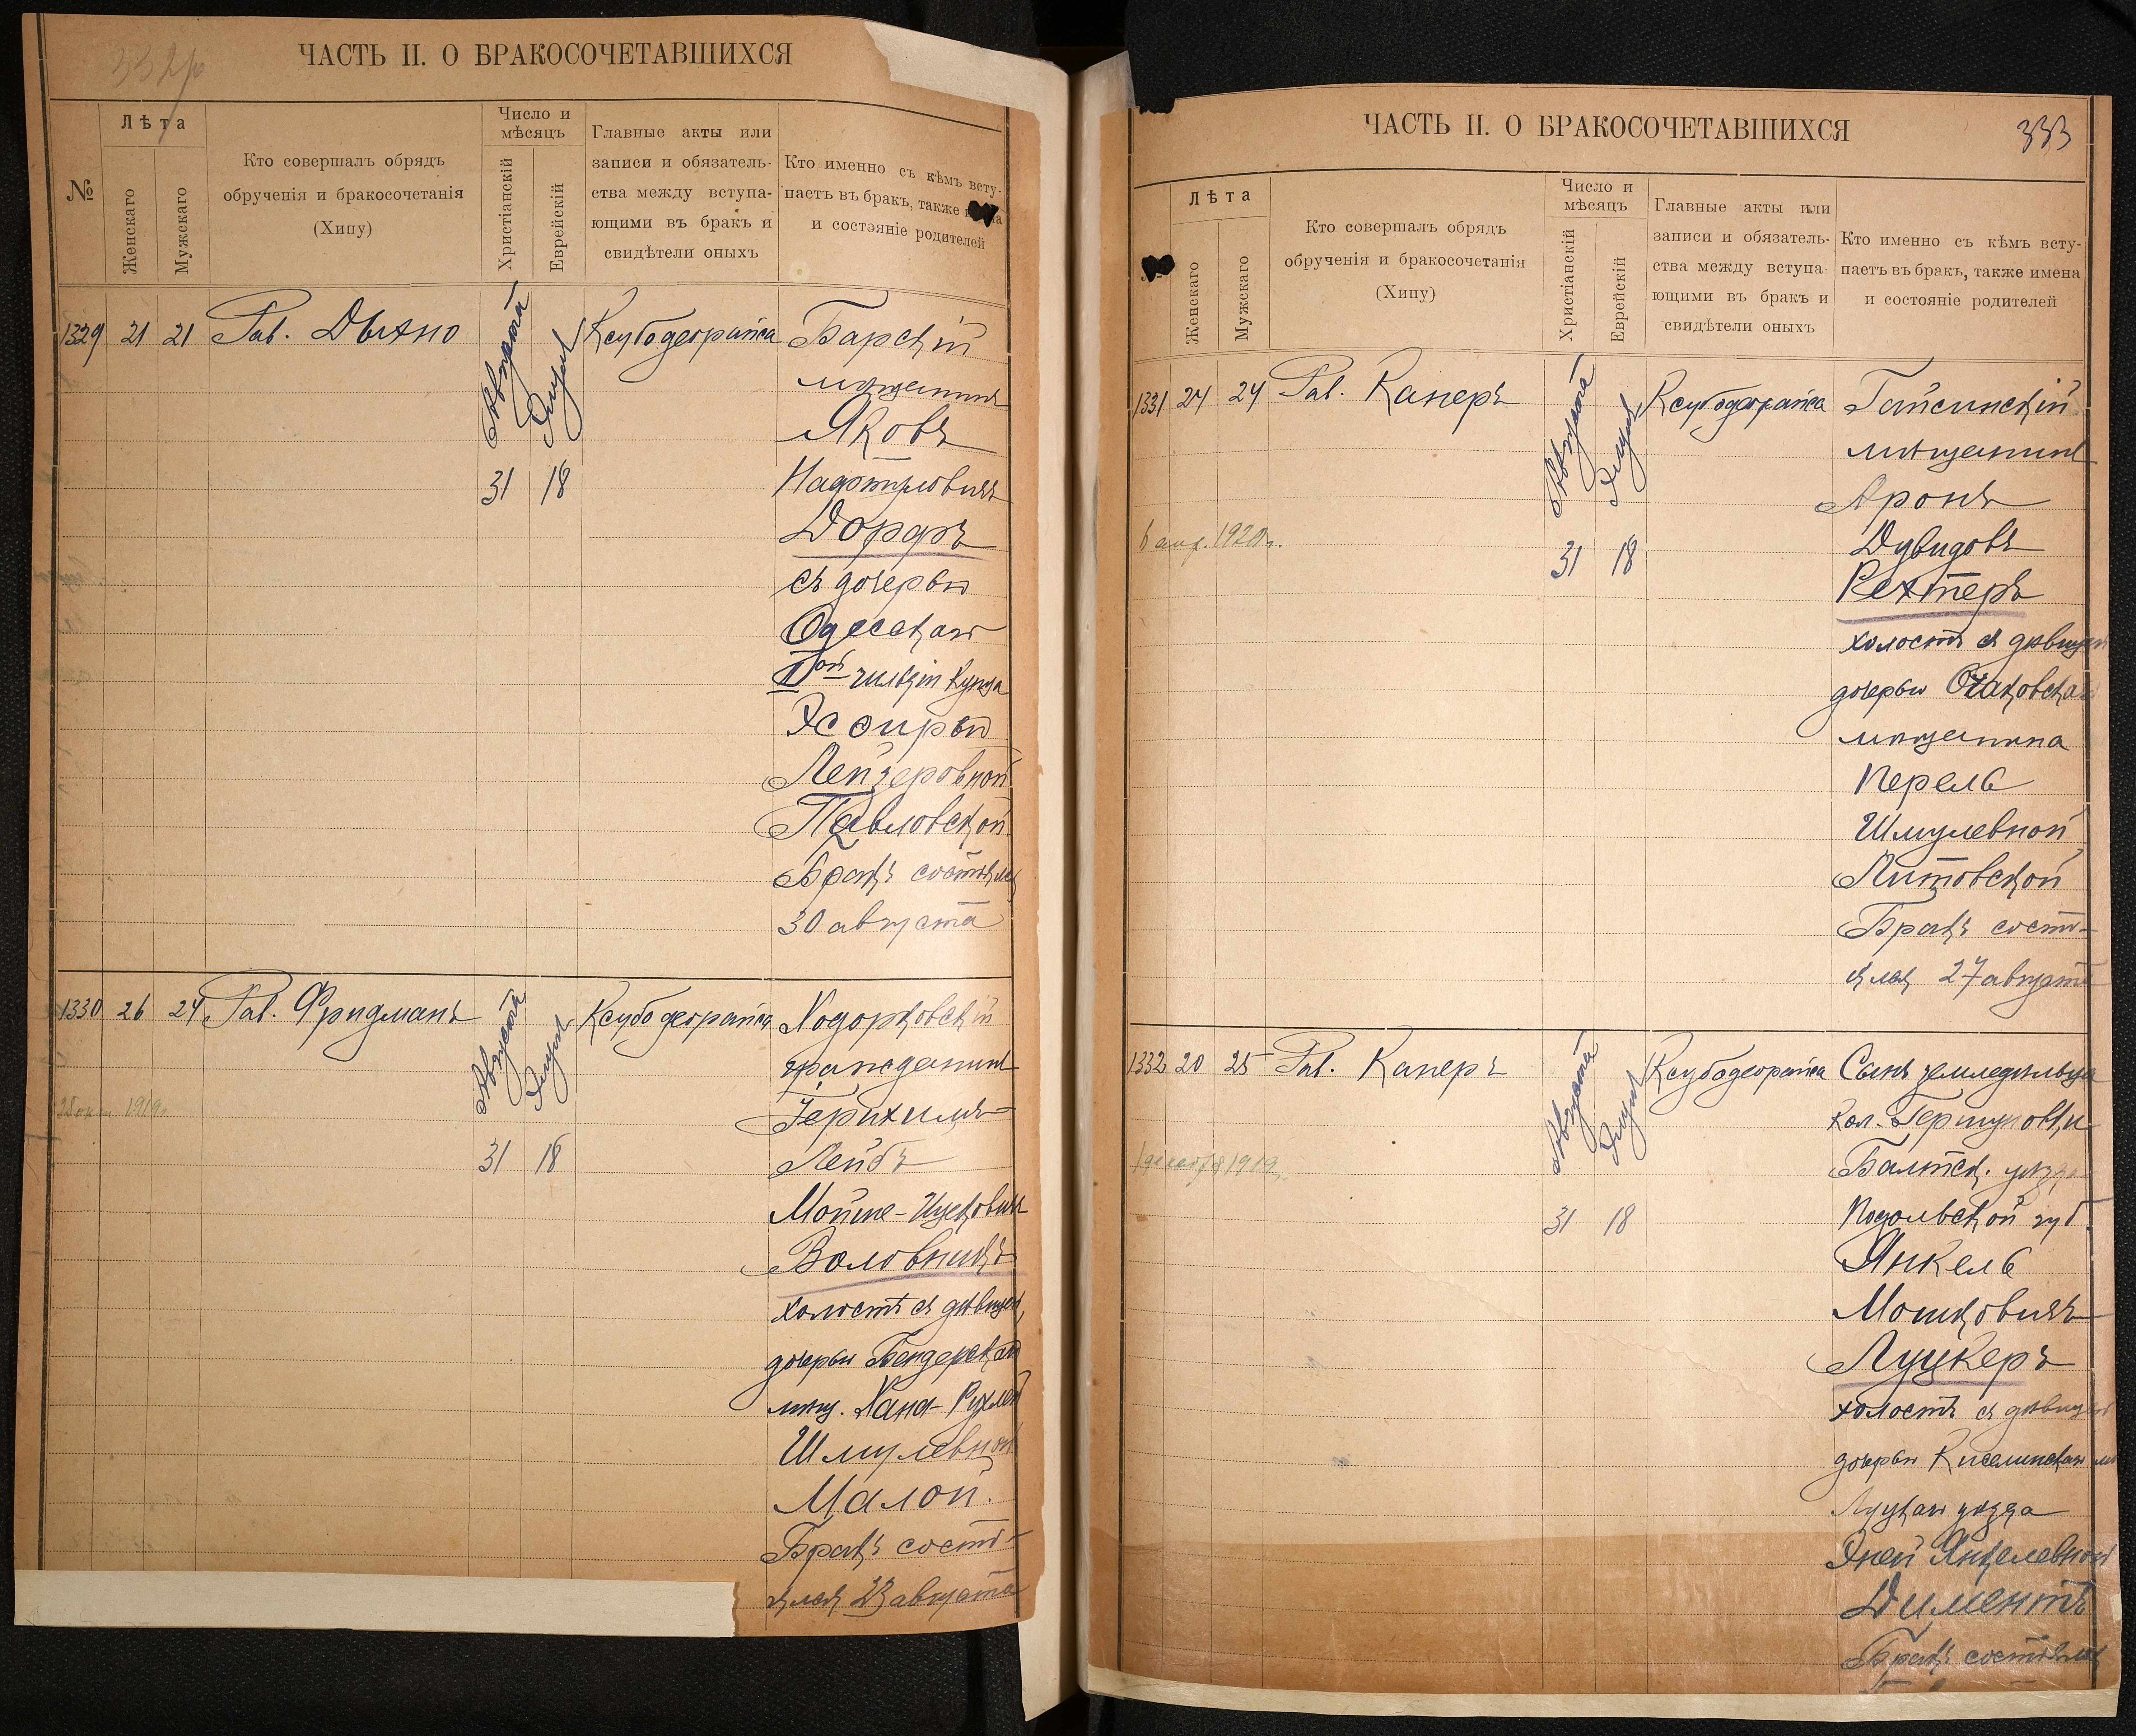 332 об
ЧАСТЬ II. О БРАКОСОЧЕТАВШИХСЯ
№
Лѣта
Женскаго
Мужскаго
Кто совершалъ обрядъ
обрученія и бракосочетанія
(Хипу)
Число и
мѣсяцъ
Христіанскій
Еврейскій
Главные акты или
записи и обязатель-
ства между вступа-
ющими въ бракъ и
свидѣтели оныхъ
Кто именно съ кѣмъ всту-
паетъ въ бракъ, также
и состояніе родителей
1329 21 21 Рав. Дыхно
Августа
Элула
31 18
Ксубодеорайса
Барскій
мѣщанинъ
Яковъ
Нафтуловичъ
Дорфъ
съ дочерью
Одесскаго
II ой гильдіи купца
Эсѳирью
Лейзеровной
Павловской
Бракъ состоялся
30 августа
1330 26 24 Рав. Фридманъ
Августа
Элула
31 18
Ксубодеорайса
1919
Ходорковскій
гражданинъ
Герихимъ-
Лейбъ
Мойше-Ицковичъ
Воловникъ
холостъ съ дѣвицей,
дочерью Бендерскаго
мѣщ. Хана-Рухлей
Шмулевной
Малой.
Бракъ состо-
ялся 23 августа
ЧАСТЬ II. О БРАКОСОЧЕТАВШИХСЯ
333
Лѣта
Женскаго
Мужскаго
Кто совершалъ обрядъ
обрученія и бракосочетанія
(Хипу)
Число и
мѣсяцъ
Христіанскій
Еврейскій
Главные акты или
записи и обязатель-
ства между вступа-
ющими въ бракъ и
свидѣтели оныхъ
Кто именно съ кѣмъ всту-
паетъ въ бракъ, также имена
и состояніе родителей
1331 24 24 Рав. Канеръ
Августа
Элула
31 18
Ксубодеорайса
1920г.
Гайсинскій
мѣщанинъ
Аронъ
Дувидовъ
Рехтеръ
холостъ съ дѣвицей
дочерью Очаковскаго
мѣщанина
Перель
Шмулевной
Литовской
Бракъ состо-
ялся 27 августа
1332 20 25 Рав. Канеръ
Августа
Элула
31 18
Ксубодеорайса
1 декабря 1919
Сынъ земледѣльца
кол. Гершуновки
Балтск. уѣзда
Подольской губ.
Янкель
Мошковичъ
Луцкеръ
холостъ съ дѣвицей
дочерью Киселинскаго
Луцкаго уѣзда
Эней Янкелевной
Диментъ
Бракъ состоялся